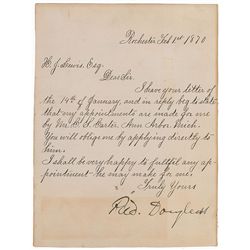 Rochester Feb 1st 1870
H. J. Lewis, Esq.
Dear Sir.
I have your letter
of the 14th of January, and in reply beg to state
that my appointments are made for me
by Mr. C. S. Carter. Ann Arbor. Mich.
You will oblige me by applying directly to
him.
I shall be very happy to fulfill any ap-
pointment he may make for me.
Truly Yours
Fred. Douglass